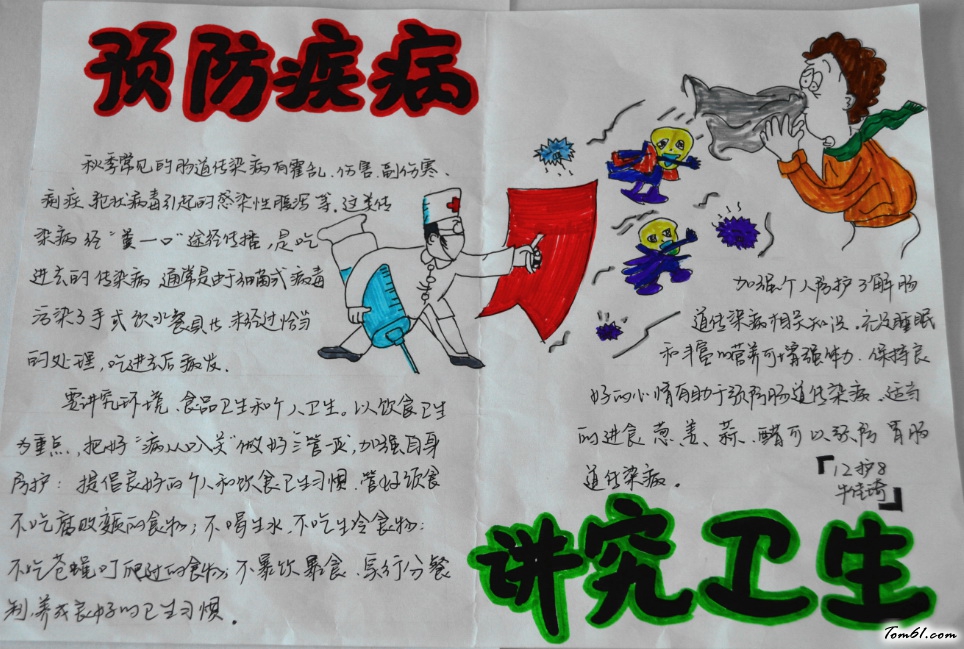 预防疾病
秋季常见的肠道传染病有霍乱、伤害、副伤寒、
痢疾、轮状病毒引起的感染性腹泻等,这类传
染病经"粪一口"途经传播,是吃
进去的传染病,通常是由于细菌或病毒
污染了手或饮水餐具传,未经过恰当
的处理,吃进去后病发。
要讲究环境、食品卫生和个人卫生。以饮食卫生
为重点,把好"病从口入关"做好三管一灭,加强自身
防护:提倡良好的个人和饮食卫生习惯,管好饮食
不吃腐败变质的食物;不喝生水、不吃生冷食物;
不吃苍蝇叮爬过的食物;不暴饮暴食、实行分餐
制,养成良好的卫生习惯。
加强个人防护了解肠
道传染病相关知识。充足睡眠
和丰富的营养可增强体力,保持良
好的心情有助于预防肠道传染病。适当
的进食葱、姜、蒜、醋可以预防胃肠
道传染病。
「12护8
牛佳琦」
讲究卫生
Tom61.com